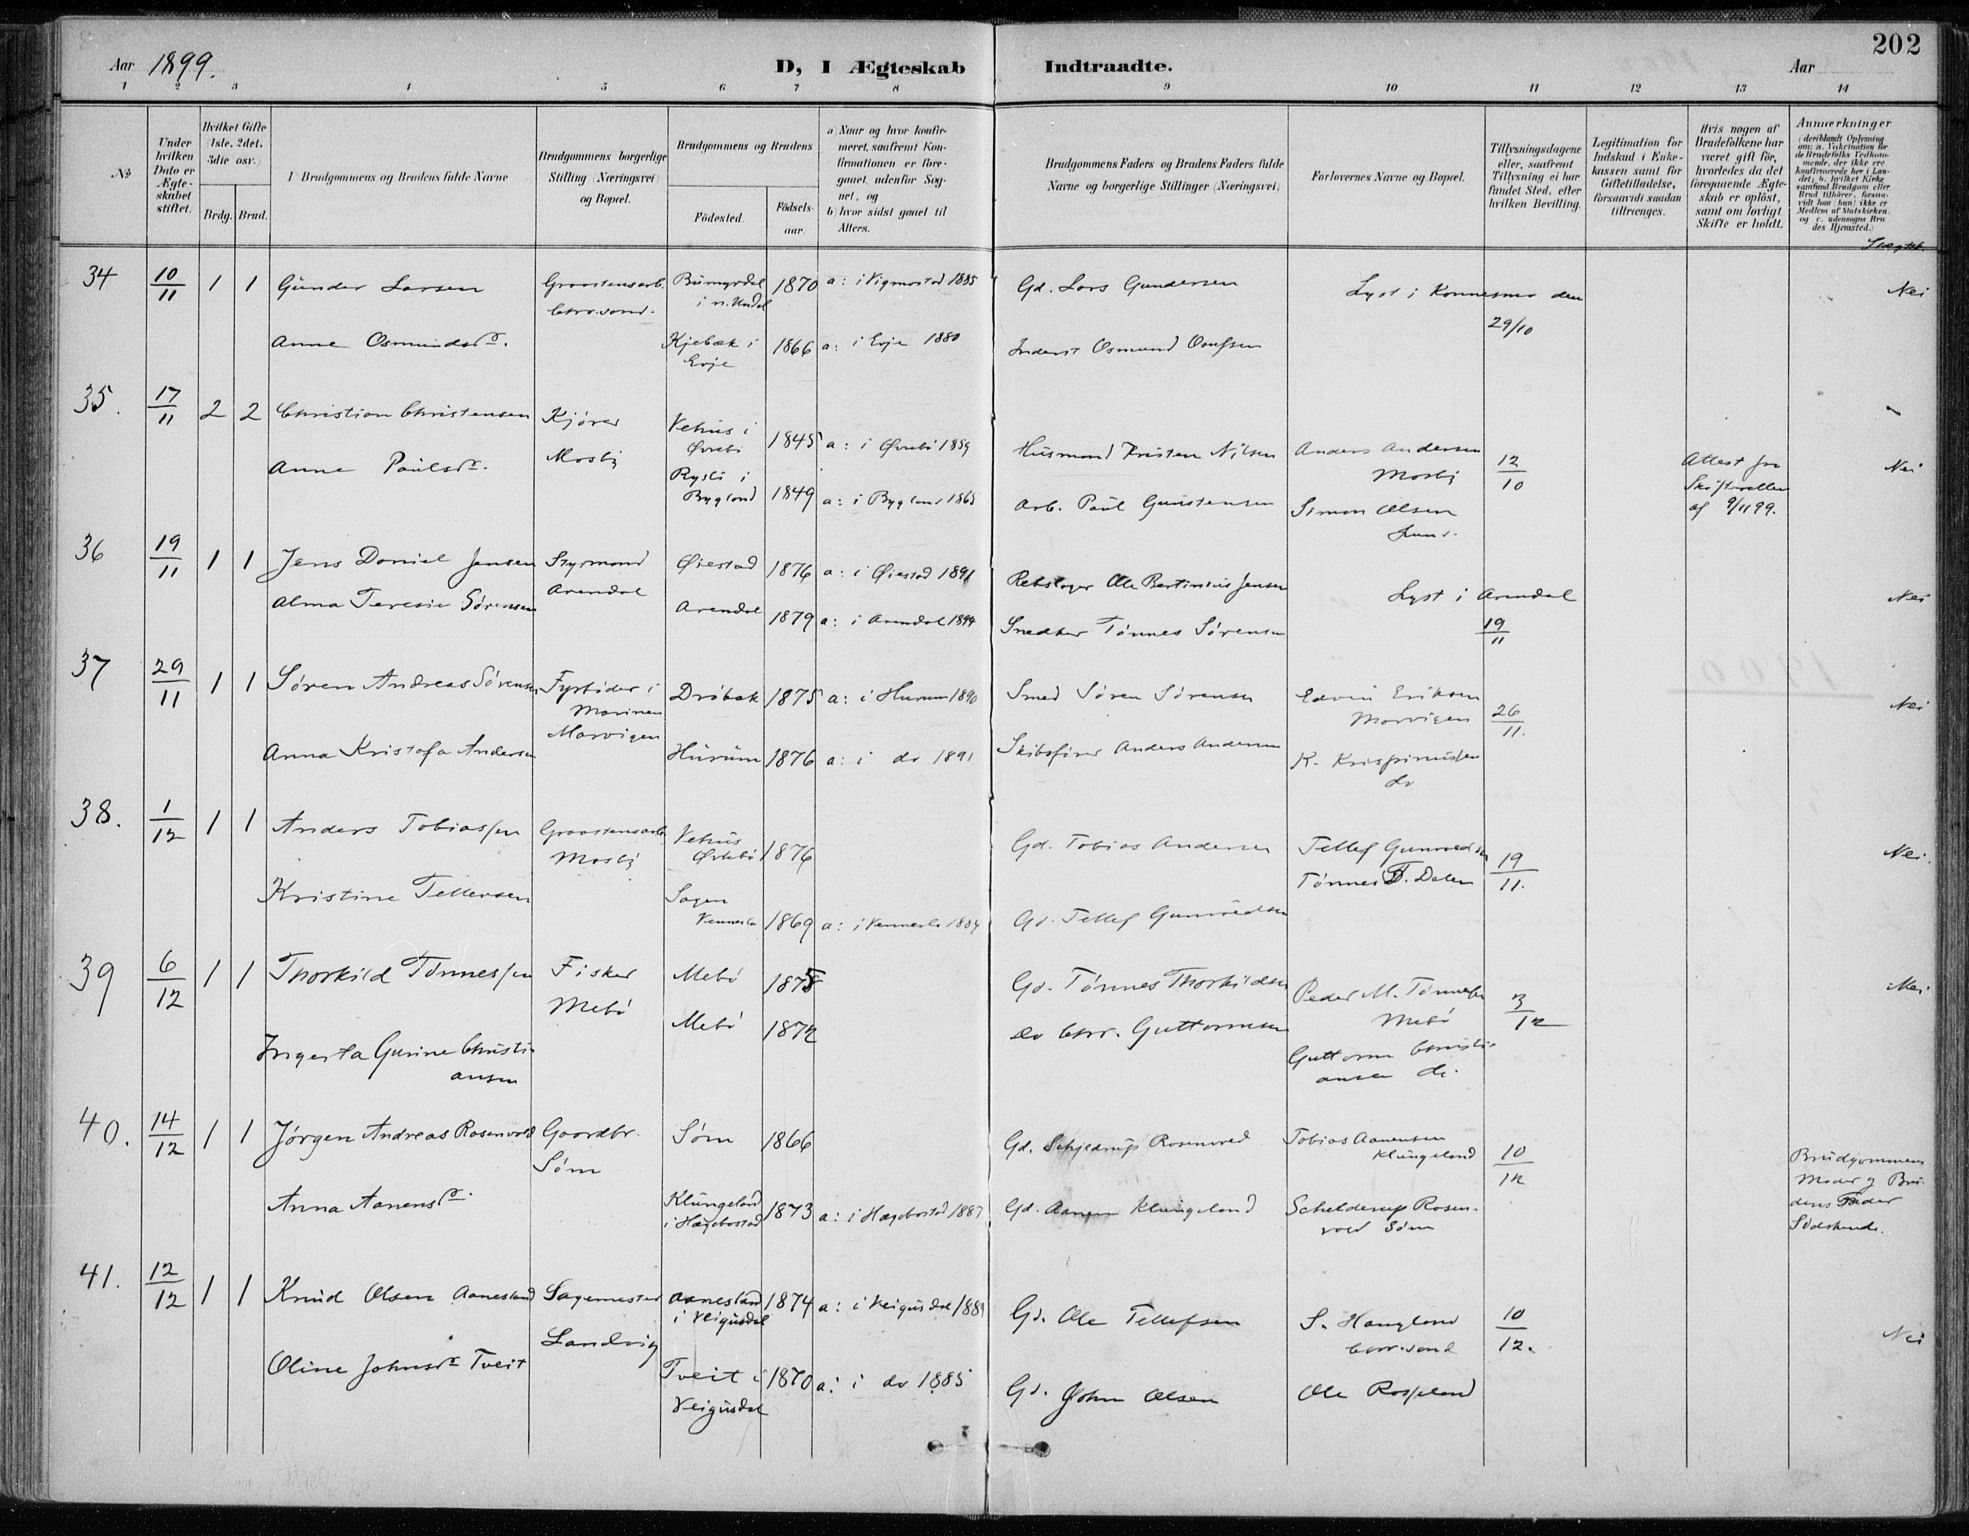 202
Aar 1899.
D, I Ægteskab Indtraadte.
Aar
1 2 3 4 5 6 7 8 9 10 11 12 13 14
No
Under hvilken Dato er Ægteskabet stiftet.
Hvilket Gifte (1ste, 2det, 3die osv.)
Brdg. Brud.
Brudgommens og Brudens fulde Navne
Brudgommens borgerlige Stilling (Næringsvei) og Bopæl.
Brudgommens og Brudens
Födested.
Födselsaar.
a) Naar og hvor konfirmeret, saafremt Konfirmationen er foregaaet udenfor Sognet, og
b) hvor sidst gaaet til Alters.
Brudgommens Faders og Brudens Faders fulde Navne og borgerlige Stillinger (Næringsvei)
Forlovernes Navne og Bopæl.
Tillysningsdagene eller, saafremt Tillysning ei har fundet Sted, efter hvilken Bevilling.
Legitimation for Indskud i Enkekassen samt for Giftetilladelse, forsaavidt saadan tiltrænges.
Hvis nogen af Brudefolkene har været gift för, hvorledes da det foregaaende Ægteskab er oplöst, samt om lovligt Skifte er holdt.
Anmærkninger
34 10/11 1 1 Gunder Larsen Graastensarb. 1870 a: i Vigmostad 1885 Gd. Lars Gundersen Lyst i Konnesmo den 29/10 Nei
Chr.sand.
Anne Osmundsd. Kjebæk i Evje 1866 a: i Evje 1880 Inderst Osmund
35. 17/11 2 2 Christian Christensen Kjører Vehus i Øvrebø 1845 a: i Øvrebø 1859 Husmand Kristen Nilsen Anders Andersen Mosby 12/10 Attest fra Skifteretten af 9/11 99. Nei
Anne Paulsd. Mosby Rysti i Bygland 1849 a: i Bygland 1865 Arb. Paul Gunstensen Simon Olsen
36 19/11 1 1 Jens Daniel Jensen Styrmand Øiestad 1876 a: i Øiestad 1891 Rebslager Ole Bertinius Jensen Lyst i Arendal 19/11 Nei
Alma Teresie Sørensen Arendal Arendal 1879 a: i Arendal 1894 Snedker Tønnes Sørensen
37 29/11 1 1 Søren Andreas Sørensen Fyrbøder i Marinen Drøbak 1875 a: i Hurum 1890 Smed Søren Sørensen Edvin Eriksen Marvigen 26/11. Nei
Marvigen
Anna Kristofa Andersen Hurum 1876 a: i do 1891 Skibsfører Anders Andersen K. Krispinussen do
38. 1/12 1 1 Anders Tobiassen Graastensarb. Vehus Øvrebø 1876 Gd. Tobias Andersen Tellef Gunvaldsen 19/11. Nei.
Mosby Tønnes T. Dalen
Kristine Tellefsen Vennesla 1869 a: i Vennesla 1884 Gd. Tellef Gunvaldsen
39 6/12 1 1 Thorkild Tønnessen Fisker Mebø 1875 Gd. Tønnes Thorkildsen Peder M. Tønnessen Mebø 3/12 Nei
Mebø
Ingerta Gurine Christiansen Mebø 1872 do Chr. Guttormsen Guttorm Christiansen do.
40. 14/12 1 1 Jørgen Andreas Rosenvold Gaardbr. Søm 1866 Gd. Schjedrup Rosenvold Tobias Aanensen Klungeland 10/12 Brudgommens Moder og Brudens Fader Södskende.
Søm
Anna Aanensd. Klungeland i Hægebostad 1873 a: i Hægebostad 1887 Gd. Aanen Klungeland Schelderup Rosenvold Søm
41. 12/12 1 1 Knud Olsen Aanesland Sagemester Aanesland i Veigusdal 1874 a: i Veigusdal 1889 Gd. Ole Tellefsen S. Haugland Chr.sand 10/12. Nei
Landvig
Oline Johnsd. Tveit Tveit i Veigusdal 1870 a: i do 1885 Gd. John Olsen Ole Rosseland